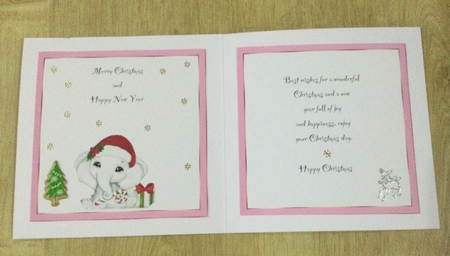 Merry Christmas
and
Happy New Year
Best wishes for a wonderful
Christmas and a new
year full of joy
and happiness, enjoy
your Christmas day.
Happy Christmas